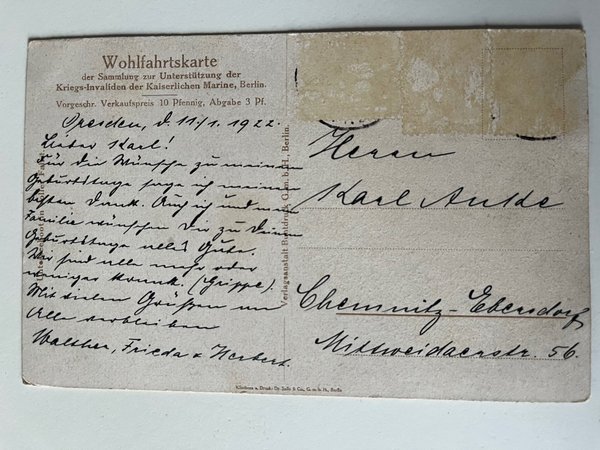 Wohlfahrtskarte
der Sammlung zur Unterstützung der
Kriegs-Invaliden der Kaiserlichen Marine, Berlin.
Vorgeschr. Verkaufspreis 10 Pfennig, Abgabe 3 Pf.
Dresden, d 11./1. 1922.
Lieber Karl!
Für die Wünsche zu meinem
Geburtstage sage ich meinen
besten Dank. Auch ich und meine
Familie wünschen Dir zu Deinem
Geburtstage alles Gute.
Wir sind alle mehr oder
weniger krank. (Grippe).
Mit vielen Grüßen an
Alle verbleiben
Walther, Frieda & Herbert.
Verlagsanstalt Buntdruck G.m.b.H., Berlin.
Herrn
Karl Anke
Chemnitz-Ebersdorf
Mittweidaerstr. 56.
Klischees u. Druck: Dr. Selle & Co., G.m.b.H., Berlin